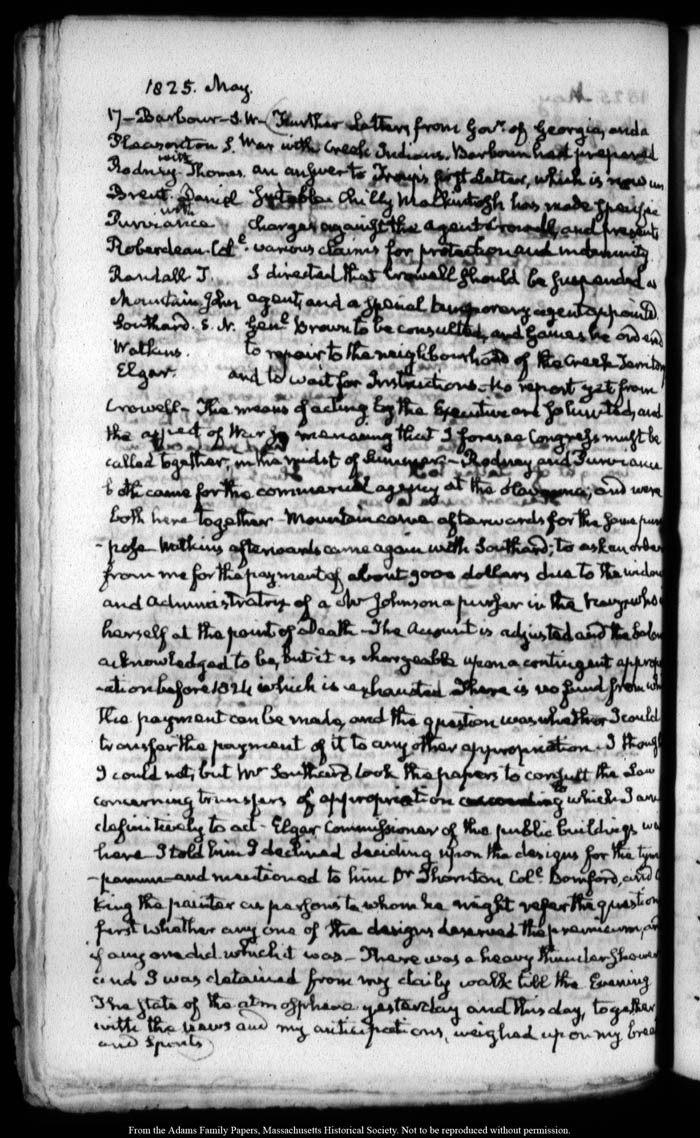 1825. May.
17 - Barbour - S. W - Further Letters from Govr. of Georgia, and a
Pleasonton S. War with Creek Indians. Barbour had prepared
Rodney with Thomas. an answer to Troup's first Letter, which is now un
Brent. Daniel suitable. Chilly MacKintosh has made specific
Purviance with charges against the Agent Crowell, and presents
Roberdeau. Colc. various claims for protection and indemnity
Randall. J. I directed that Crowell should be suspended as
Mountain John agent, and a special temporary agent appointed.
Southard. S. N. Genl. Brown to be consulted, and Gaines be ordered
Watkins. to repair to the neighbourhood of the Creek Territory
Elgar. and to wait for Instructions - No report yet from
Crowell - The means of acting by the Executive are so limited, and
the aspect of War so menacing that I foresee Congress must be
called together, in the midst of Summer - Rodney and Purviance
both came for the commercial agency at the Havanna; and were
both here together - Mountain came afterwards for the same pur
-pose - Watkins afterwards came again with Southard; to ask an order
from me for the payment of about 9000 dollars due to the widow
and administratrix of a Mr Johnson a purser in the Navy, who is
herself at the point of Death - The Account is adjusted and the balance
acknowledged to be, but it is chargeable upon a contingent appropri
-ation before 1824 which is exhausted. There is no fund from which
the payment can be made, and the question was whether I could
transfer the payment of it to any other appropriation. I thought
I could not, but Mr Southard took the papers to consult the Law
concerning transfers of appropriation to which I am
definitively to act - Elgar Commissioner of the public buildings was
here. I told him I declined deciding upon the designs for the tym
-panum - and mentioned to him Dr Thornton Colc. Bomford, and
King the painter as persons to whom he might refer the question
first whether any one of the designs deserved the premium, and
if any one did which it was - There was a heavy thunder shower
and I was detained from my daily walk till the Evening
The state of the atmosphere yesterday and this day, together
with the news and my anticipations, weighed upon my
and Spirits
From the Adams Family Papers, Massachusetts Historical Society. Not to be reproduced without permission.